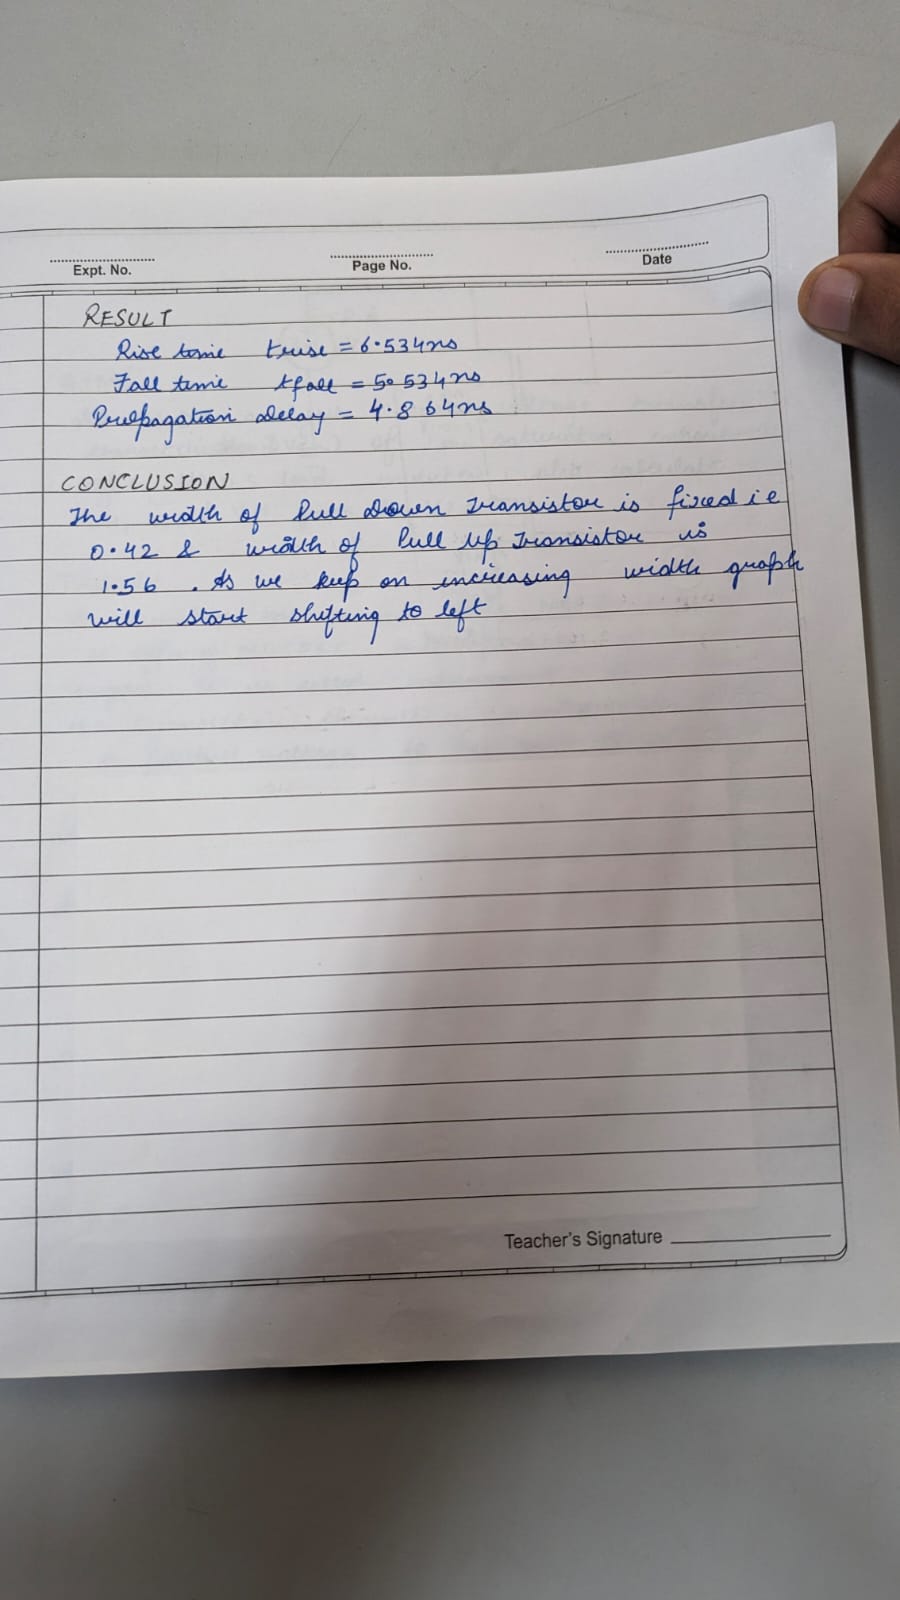 Expt. No.
Page No.
Date
RESULT
Rise time trise = 6.534ns
Fall time tfall = 5.534ns
Propagation delay = 4.864ns
CONCLUSION
The width of Pull down transistor is fixed ie
0.42 & width of Pull up transistor is
1.56 . As we keep on increasing width graph
will start shifting to left
Teacher's Signature